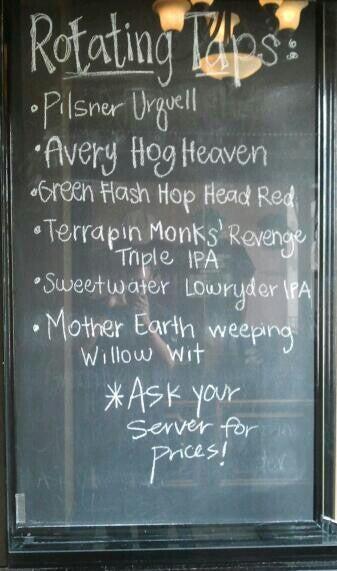 Rotating Taps:
• Pilsner Urquell
• Avery Hog Heaven
• Green Flash Hop Head Red
• Terrapin Monks' Revenge
Triple IPA
• Sweetwater Lowryder IPA
• Mother Earth weeping
Willow Wit
*Ask your
Server for
prices!